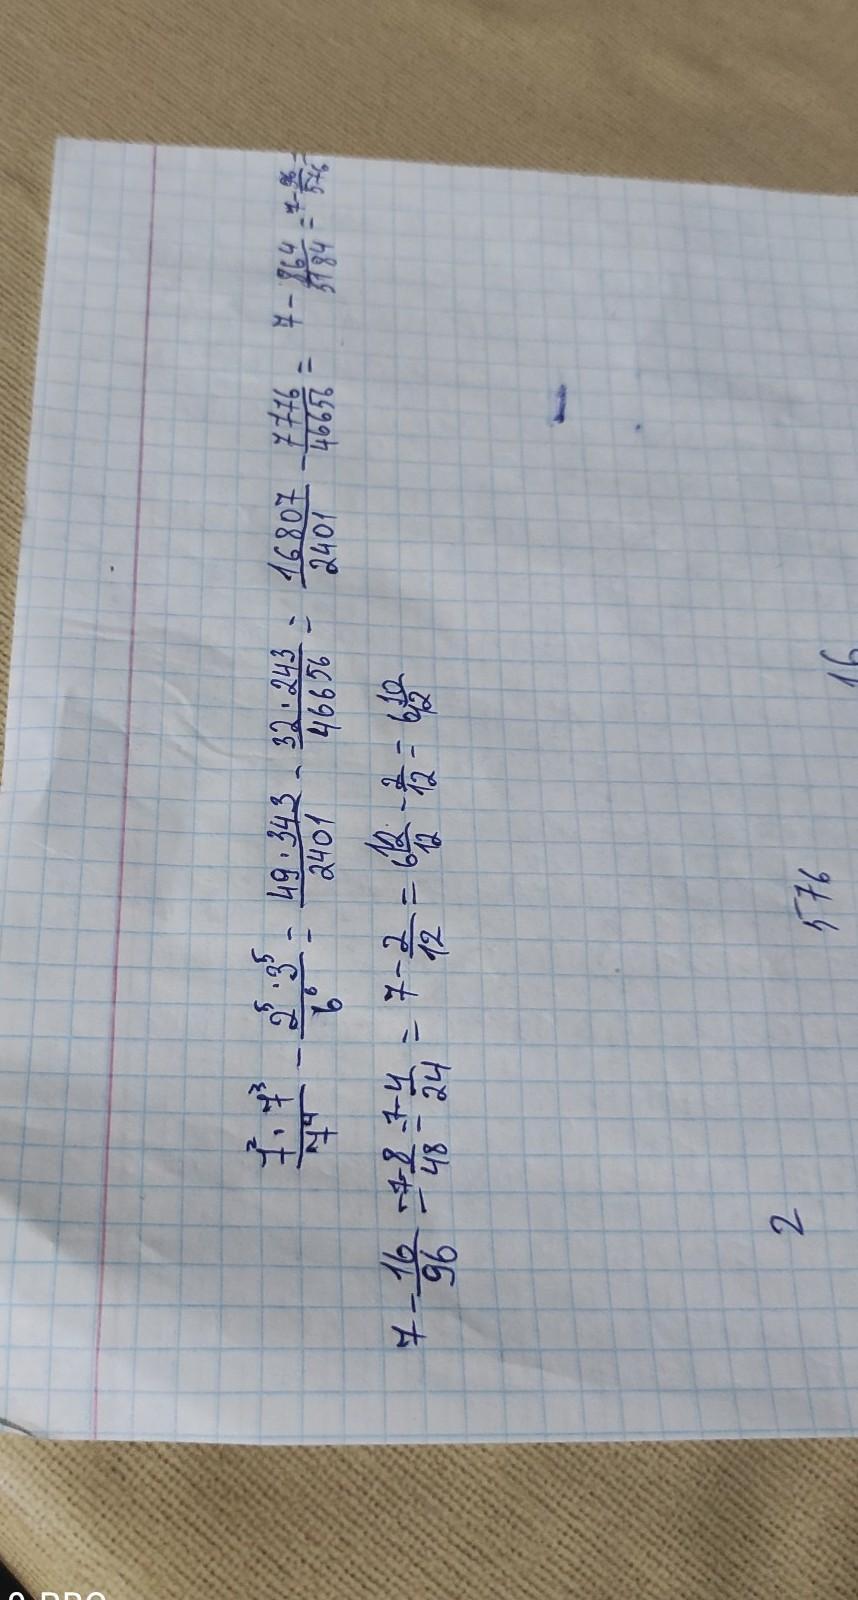 7² · 7³ / 7⁴ − 2⁵ · 3⁵ / 6⁶ = 49 · 343 / 2401 − 32 · 243 / 46656 = 16807 / 2401 − 7776 / 46656 = 7 − 864 / 5184 = 7 − 96 / 576 =
7 − 16 / 96 = 7 − 8 / 48 = 7 − 4 / 24 = 7 − 2 / 12 = 6 12 / 12 − 2 / 12 = 6 10 / 12
2 576 16